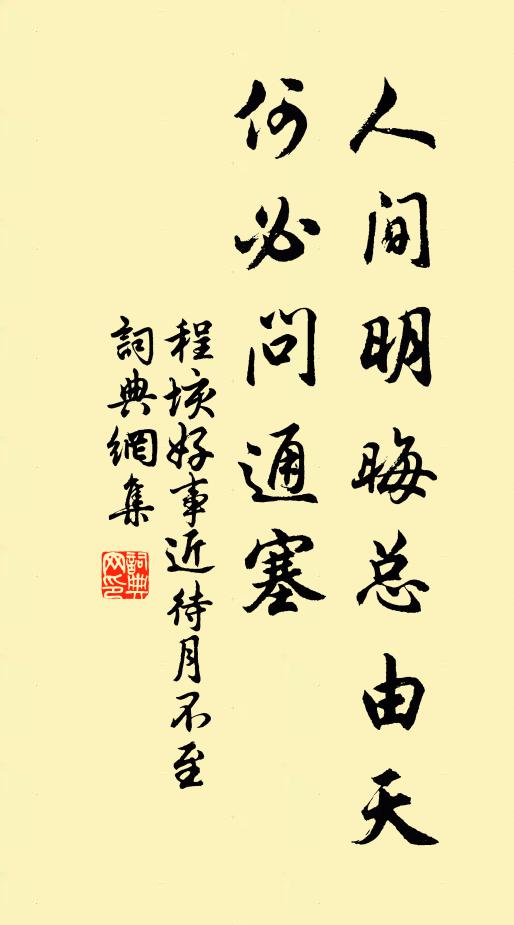 人间明晦总由天
何必问通塞
程垓好事近 待月不至
词典网集
词典网印